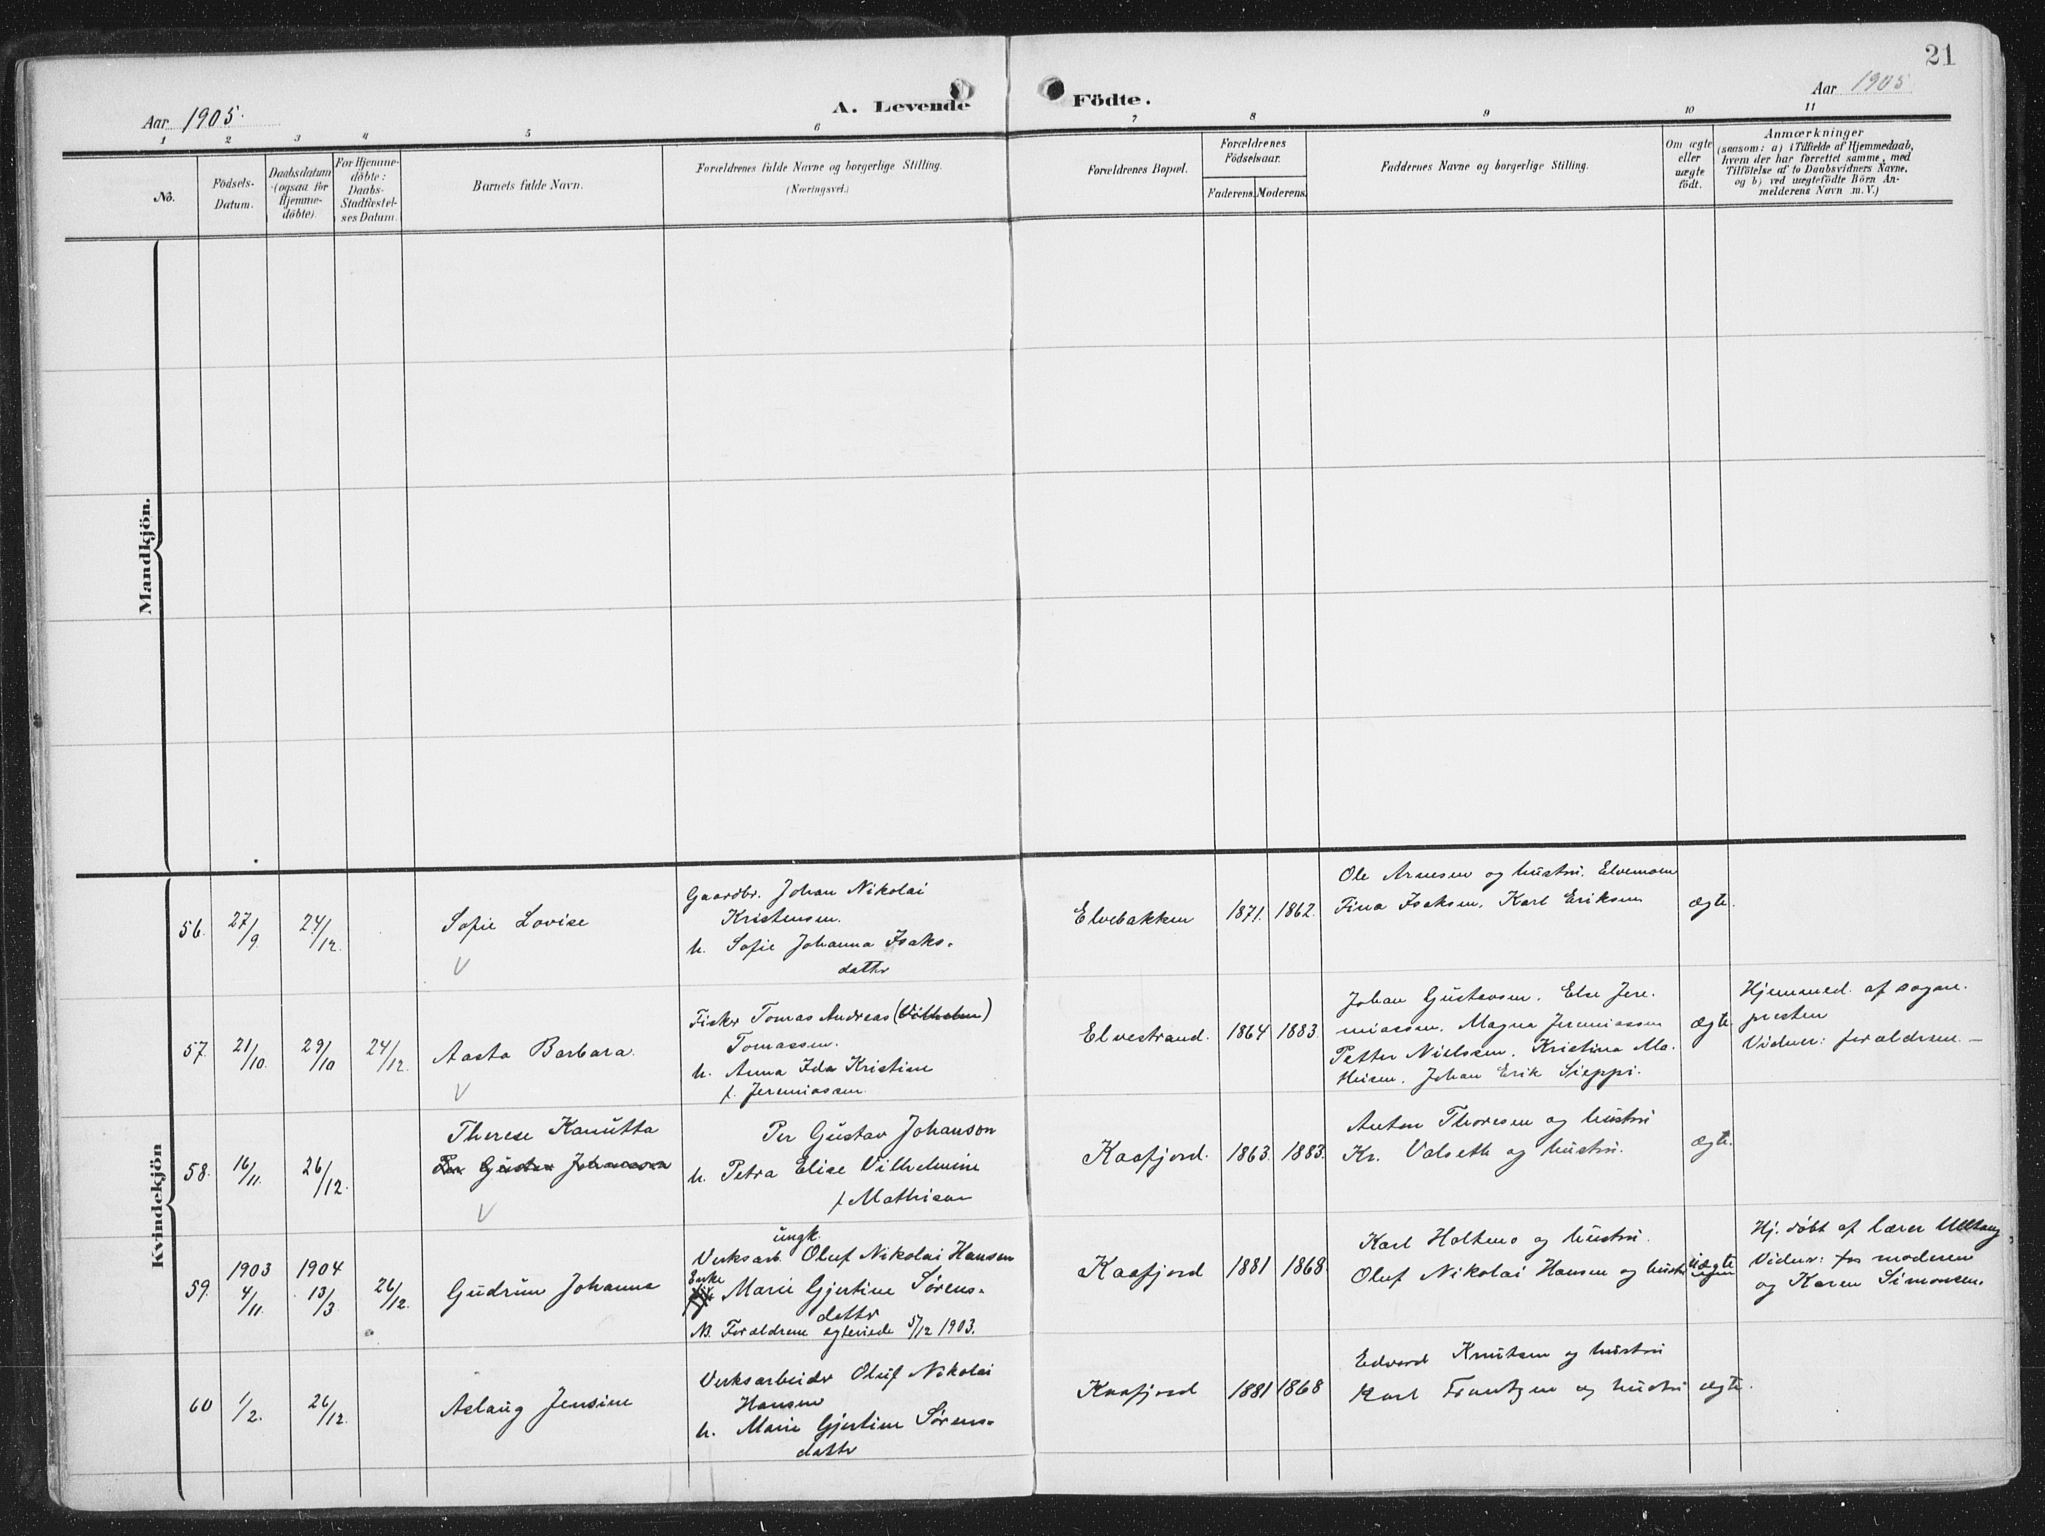 21
Aar 1905.
A. Levende Födte.
Aar 1905
1 2 3 4 5 6 7 8 9 10 11
No.
Födsels-
Datum.
Daabsdatum
(ogsaa for
Hjemme-
döbte).
For Hjemme-
döbte:
Daabs-
Stadfæstel-
ses Datum.
Barnets fulde Navn.
Forældrenes fulde Navne og borgerlige Stilling.
(Næringsvei.)
Forældrenes Bopæl.
Forældrenes
Födselsaar.
Faderens. Moderens.
Faddernes Navne og borgerlige Stilling.
Om ægte
eller
uægte
födt.
Anmærkninger
(saasom: a) i Tilfælde af Hjemmedaab,
hvem der har forrettet samme, med
Tilföielse af to Daabsvidners Navne,
og b) ved uægtefödte Börn An-
melderens Navn m. V.)
Mandkjön.
Kvindekjön
56. 27/9. 24/12. Sofie Lovise
Gaardbr. Johan Nikolai
Kristensen.
h. Sofie Johanna Isaks-
dattr
Elvebakken 1871. 1862.
Ole Arnesen og hustru. Elvemoen
Fina Isaksen. Karl Eriksen
ægte.
57. 21/10. 29/10 24/12. Aasta Barbara.
Fisker Tomas Andreas (Vilhelm)
Tomassen.
h. Anna Ida Kristine
f. Jeremiassen.
Elvestrand. 1864 1883.
Johan Gustavsen. Else Jere-
miassen. Magna Jeremiassen
Petter Nielssen. Kristina Ma-
thisen. Johan Erik Sieppi.
ægte.
Hjemmed. af sogne-
presten
Vidner: forældrene.
58. 16/11. 26/12. Therese Kanutta
Per Gustav Johansson
Per Gustav Johanson
h. Petra Elise Vilhelmine
f. Mathisen
Kaafjord. 1863. 1883.
Anton Thoresen og hustru
Kr. Valseth og hustru.
ægte.
59. 1903 4/11. 1904 13/3 26/12. Gudrun Johanna
ungk.
Verksarb. Oluf Nikolai Hansen
Enke
Marie Gjertine Sørens-
dattr
NB. Forældrene egteviede 5/12 1903.
Kaafjord 1881 1868.
Karl Holteno og hustru.
Oluf Nikolai Hansen og hustru
uægte
Hj. døbt af lærer Ulltang
Vidner: fru moderen
og Karen Simonsen.
60 1/2. 26/12. Aslaug Jensine
Verksarbeider Oluf Nikolai
Hansen
h. Marie Gjertine Sørens-
dattr
Kaafjord 1881 1868
Edvard Knutsen og hustru
Karl Frantzen og hustru
ægte.